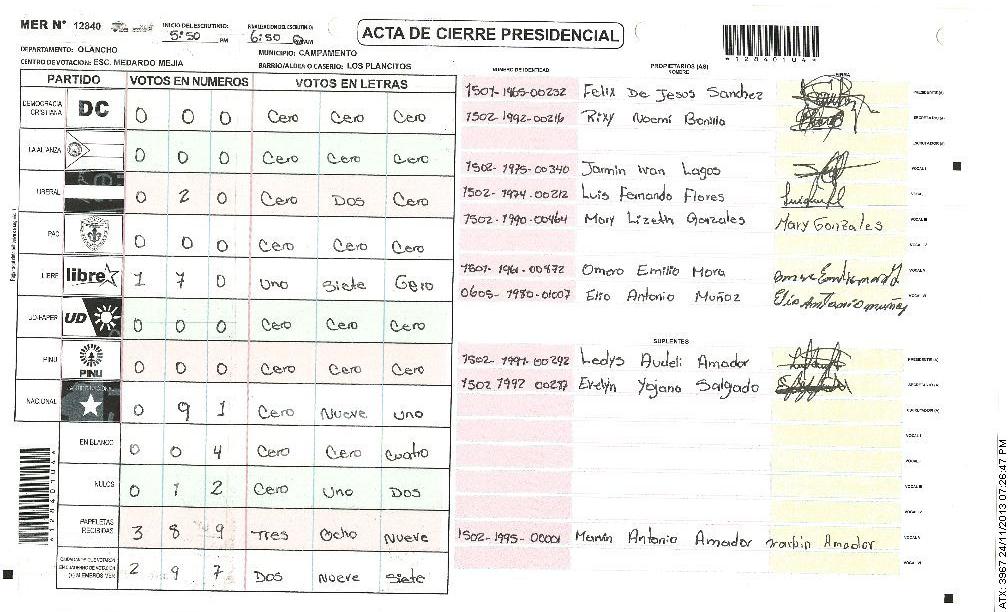 MER N° 12840
INICIO DEL ESCRUTINIO: 5:50 PM
FINALIZACION DEL ESCRUTINIO: 6:50
ACTA DE CIERRE PRESIDENCIAL
*1284010U4*
DEPARTAMENTO: OLANCHO
MUNICIPIO: CAMPAMENTO
CENTRO DE VOTACION: ESC. MEDARDO MEJIA
BARRIO/ALDEA O CASERIO: LOS PLANCITOS
PARTIDO VOTOS EN NUMEROS VOTOS EN LETRAS
DEMOCRACIA CRISTIANA DC 0 0 0 Cero Cero Cero
LA ALIANZA 0 0 0 Cero Cero Cero
LIBERAL 0 2 0 Cero Dos Cero
PAC 0 0 0 Cero Cero Cero
LIBRE libre 1 7 0 Uno Siete Cero
UD-FAPER UD 0 0 0 Cero Cero Cero
PINU PINU 0 0 0 Cero Cero Cero
NACIONAL 0 9 1 Cero Nueve Uno
EN BLANCO 0 0 4 Cero Cero Cuatro
NULOS 0 1 2 Cero Uno Dos
PAPELETAS RECIBIDAS 3 8 9 Tres Ocho Nueve
2 9 7 Dos Nueve Siete
NUMERO DE IDENTIDAD
PROPIETARIOS (AS)
NOMBRE
FIRMA
1501-1965-00232 Felix De Jesus Sanchez PRESIDENTE(A)
1502-1992-00216 Rixy Noemi Bonilla SECRETARIO(A)
ESCRUTADOR(A)
1502-1975-00340 Jarmin Ivan Lagos VOCAL I
1502-1974-00212 Luis Fernando Flores
1502-1990-00464 Mary Lizeth Gonzales Mary Gonzales VOCAL III
VOCAL IV
1501-1961-00872 Omoro Emilio Mora VOCAL V
0605-1980-01007 Elio Antonio Muñoz Elio Antonio muñoz VOCAL VI
SUPLENTES
1502-1991-00292 Ledys Audeli Amador PRESIDENTE(A)
1502 1992 00287 Evelyn Yojana Salgado SECRETARIO(A)
ESCRUTADOR(A)
VOCAL I
VOCAL II
VOCAL III
VOCAL IV
1502-1995-00001 Marvin Antonio Amador marbin Amador VOCAL V
VOCAL VI
ATX: 3967 24/11/2013 07:26:47 PM